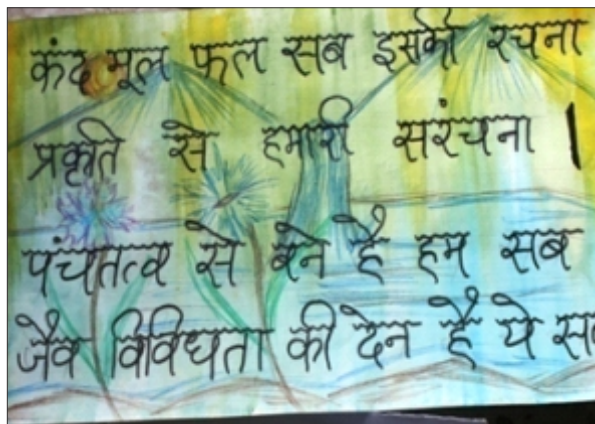 कंद मूल फल सब इसकी रचना
प्रकृति से हमारी सरंचना ।
पंचतत्व से बने है हम सब
जैव विविधता की देन है ये सब